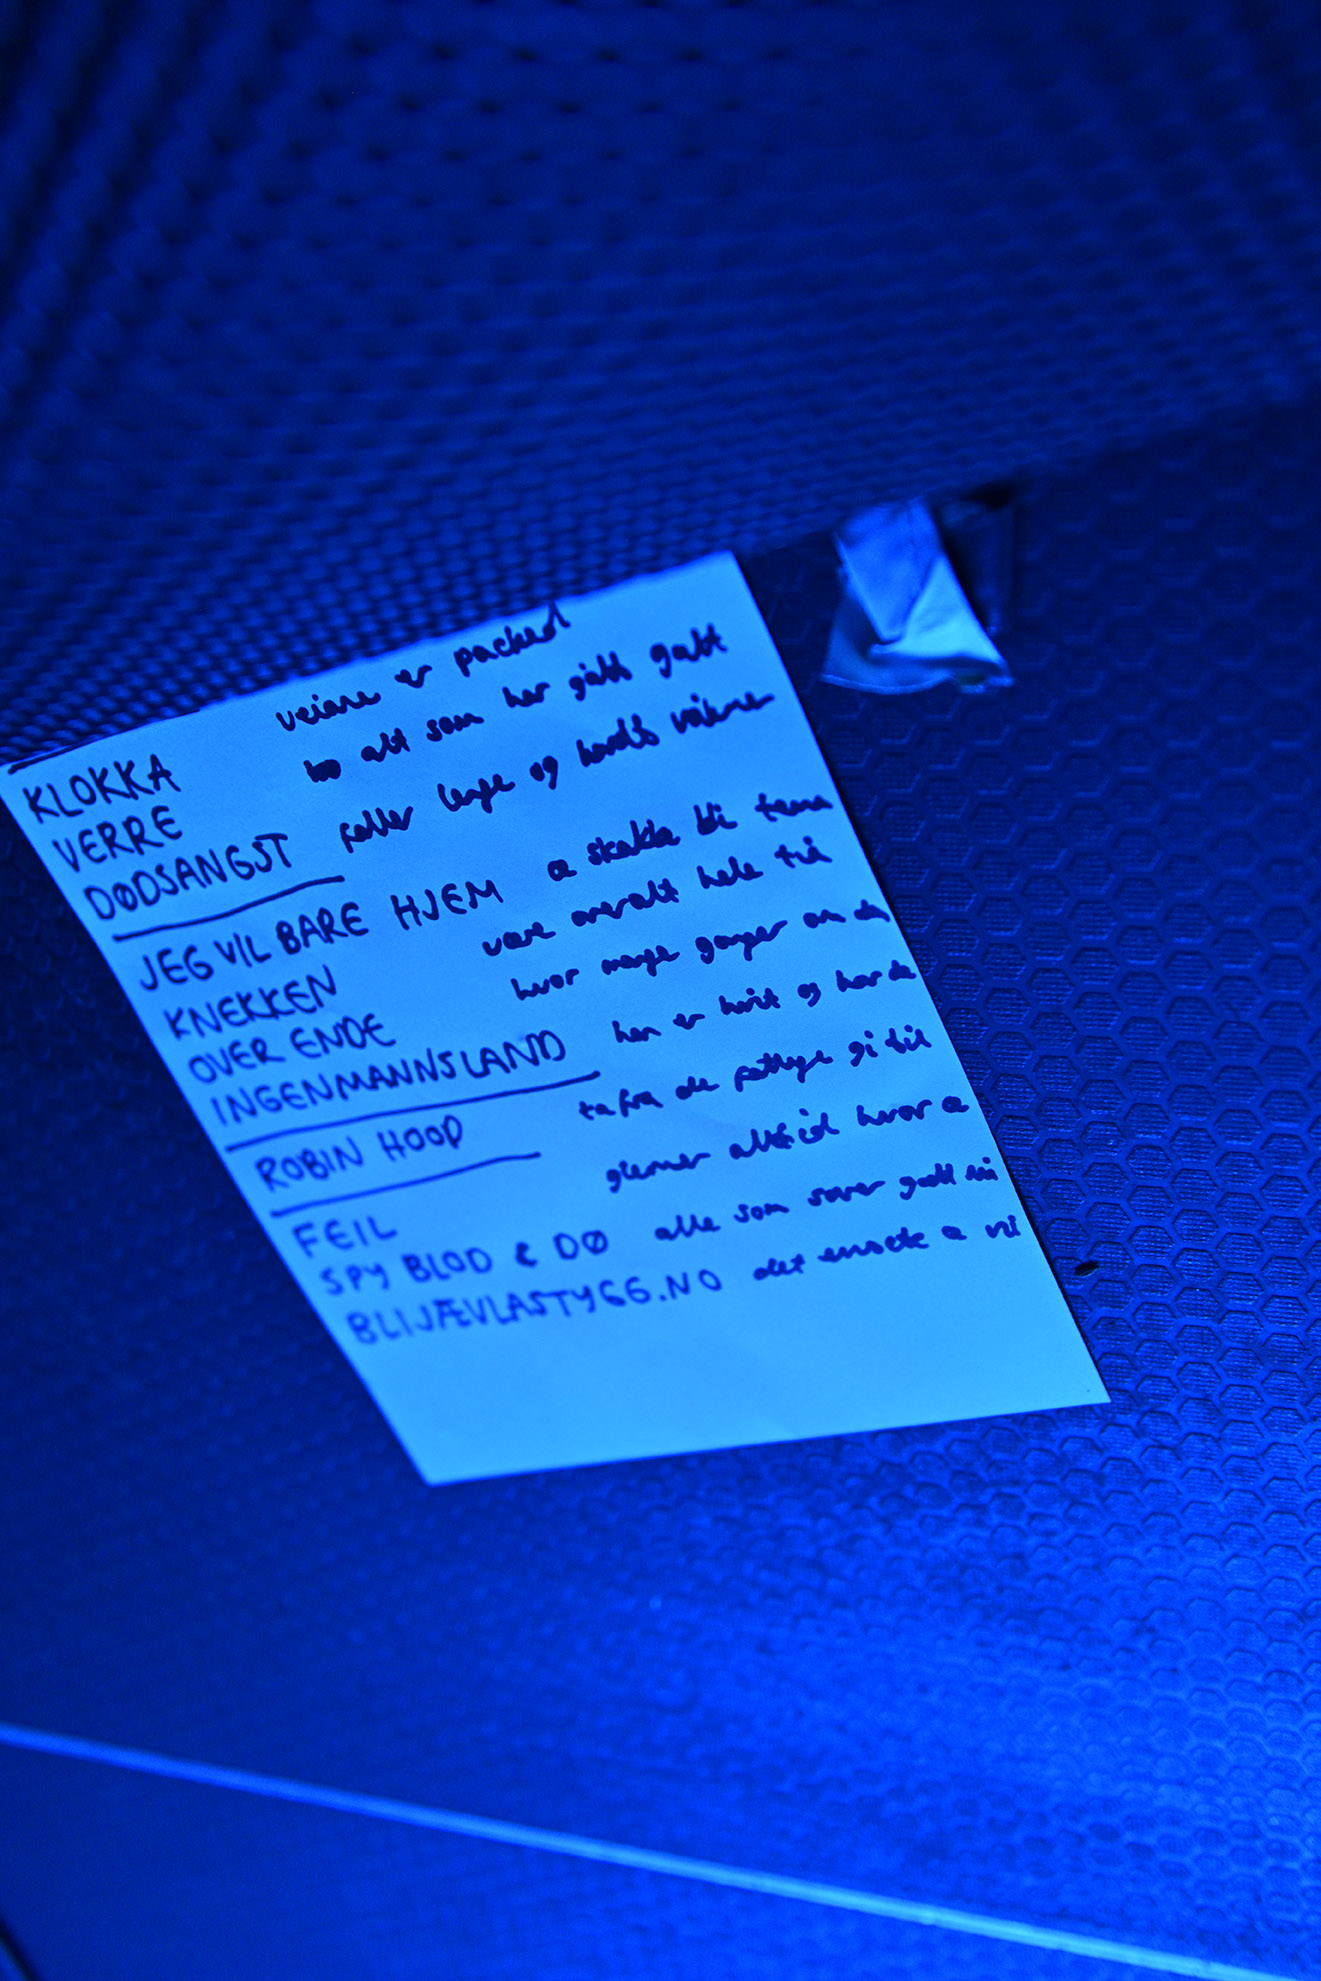 KLOKKA veiene er packed
VERRE to alt som har gått galt
DØDSANGST faller lenge og hardt våkner
JEG VIL BARE HJEM æ skakke bli
KNEKKEN være overalt hele tiå
OVER ENDE hvor mange ganger om da
INGENMANNSLAND han er hvit og har de
ROBIN HOOD ta fra de fattige gi til
FEIL glemmer alltid hvor æ
SPY BLOD & DØ alle som sover godt
BLIJÆVLASTYGG.NO det eneste æ vil